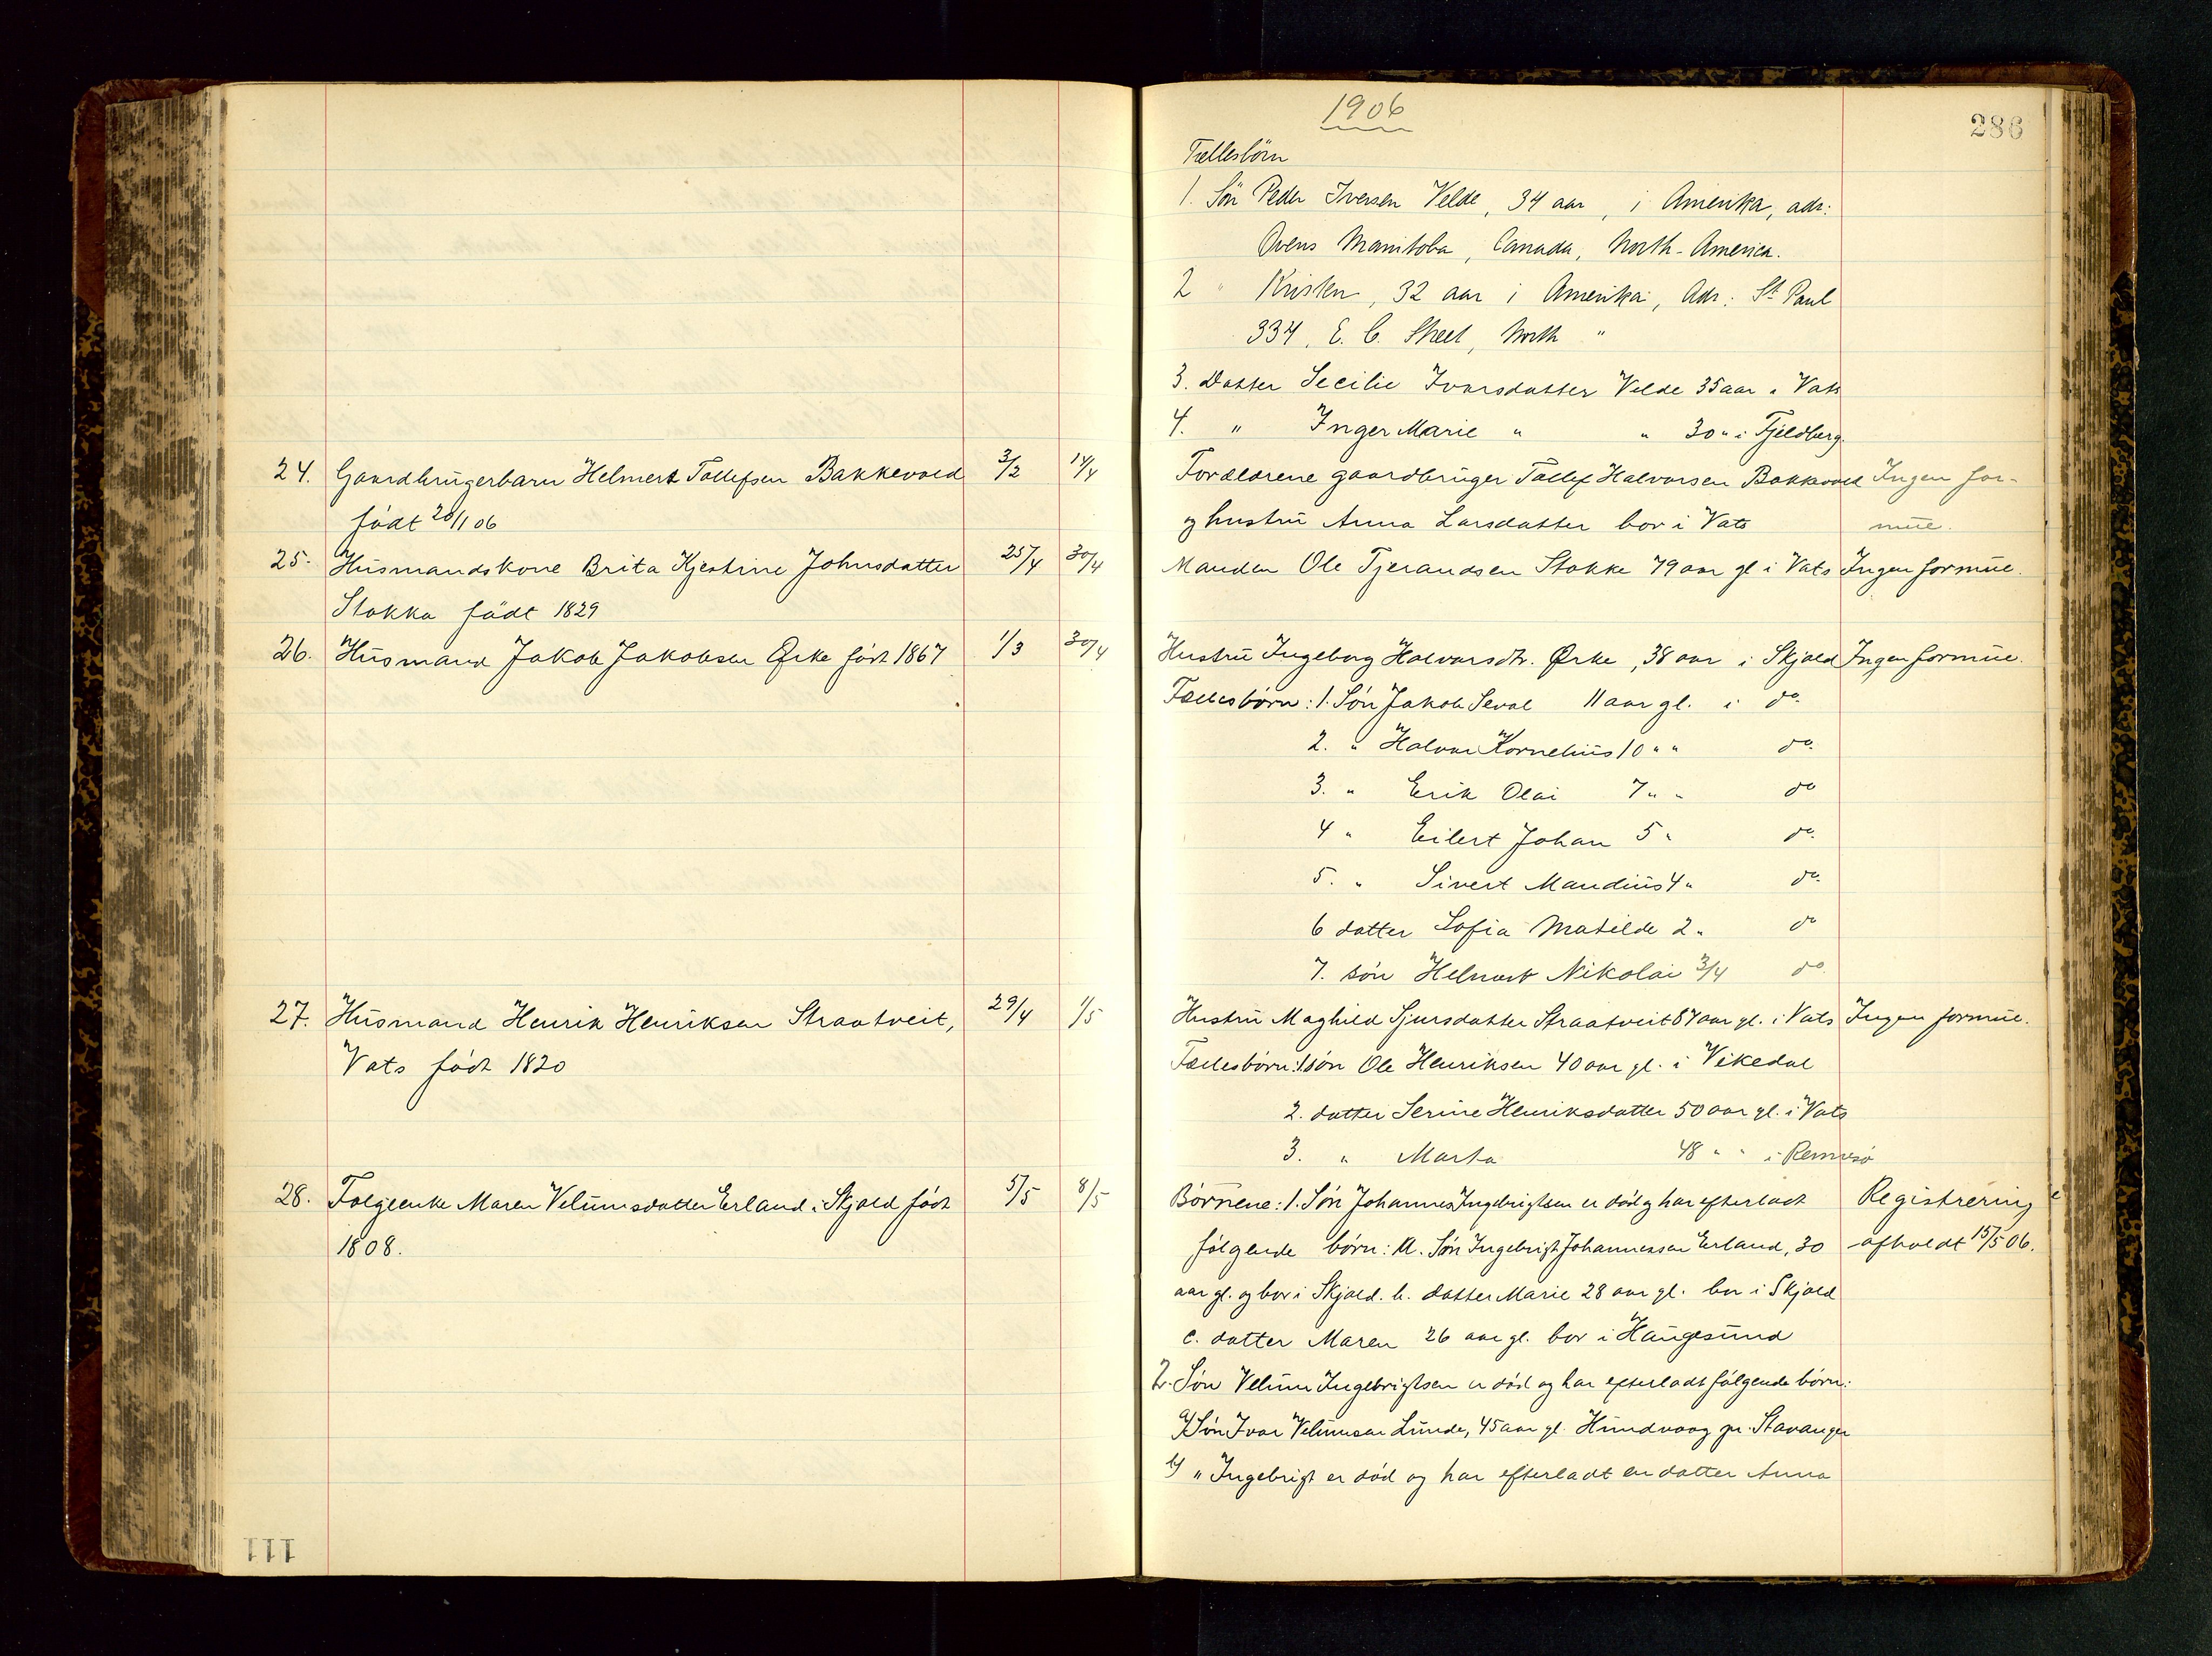 1906
286
Fællesbörn
1. Sön Peder Iversen Velde, 34 aar, i Amerika, adr:
Ovens Manitoba, Canada, North-America.
2 " Kristen, 32 aar i Amerika, Adr: St Paul
334, E. C. Street, North "
3. Datter Secilie Ivarsdatter Velde 35 aar i Vats
4. " Inger Marie " " 30 " i Fjeldberg.
24. Gaardbrugerbarn Helmert Tollefsen Bakkevold 3/2 14/4 Forældrene gaardbruger Tollef Halvorsen Bakkevold Ingen for-
födt 20/1 06 og hustru Anna Larsdatter bor i Vats mue.
25. Husmandskone Brita Kjestine Johnsdatter 25/4 30/4 Manden Ole Tjerandsen Stokke 79 aar gl i Vats Ingen formue.
Stokka födt 1829
26. Husmand Jakob Jakobsen Ørke født 1867 1/3 30/4 Hustru Ingeborg Halvorsdtr. Ørke, 38 aar i Skjold Ingen formue.
Fællesbørn: 1. Søn Jakob Seval 11 aar gl. i do.
2. " Halvor Kornelius 10 " " do.
3. " Erik Olai 7 " " do
4 " Eilert Johan 5 " do.
5. " Sivert Mandius 4 " do.
6 datter Sofia Matilde 2 " do
7. søn Helmert Nikolai 3/4 do.
27. Husmand Henrik Henriksen Straatveit, 29/4 1/5 Hustru Maghild Sjursdatter Straatveit 87 aar gl. i Vats Ingen formue.
Vats født 1820 Fællesbørn: 1 søn Ole Henriksen 40 aar gl. i Vikedal
2. datter Serine Henriksdatter 50 aar gl. i Vats
3. " Marta 48 " " i Rennesø
28. Folgeenke Maren Velumsdatter Erland i Skjold født 5/5 8/5 Børnene: 1. Søn Johannes Ingebrigtsen er død og har efterladt Registrering
1808. følgende børn: a. Søn Ingebrigt Johannessen Erland, 30 afholdt 15/5 06.
aar gl. og bor i Skjold. b. datter Marie 28 aar gl. bor i Skjold
c. datter Maren 26 aar gl. bor i Haugesund
2. Søn Velum Ingebrigtsen er død og har efterladt følgende børn:
a) Søn Ivar Velumsen Lunde, 45 aar gl. Hundvaag pr. Stavanger
b) " Ingebrigt er død og har efterladt en datter Anna
111